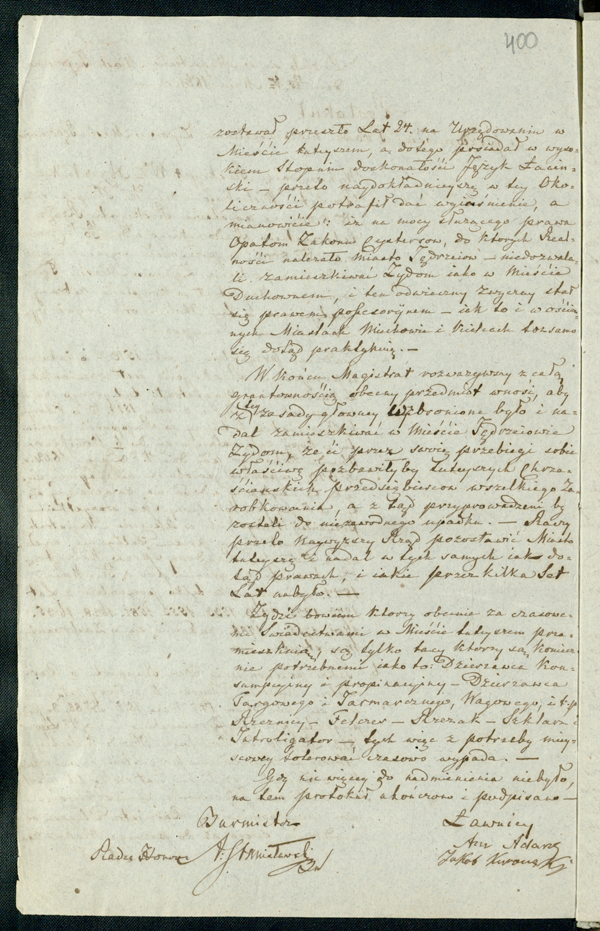 400
zostawał przeszło Lat 24. na Urzędowaniu w
Mieście tutejszem, a do tego posiadał w wyso-
kiem Stopniu doskonałości Język Łaciń-
ski — przeto naydokładnieyszę w tey Oko-
liczności potrafił dać wyjaśnienie, a
mianowicie: iż na mocy służącego prawa
Opatom Zakonu Cystersów, do których Real-
ności należało Miasto Jędrzeiów — niedozwala-
li zamieszkiwać Żydom iako w Mieście
Duchownem, i ten odwieczny zwyczay stał
się prawem possessoryinem — iak to i w ościen-
nych Miastach Miechowie i Kielcach tożsamo
się dotąd praktykuie. —
W końcu Magistrat rozważywszy z całą
gruntownością obecny przedmiot wnosi, aby
z tey zasady główney wzbronione było i na-
dal zamieszkiwać w Mieście Jędrzeiowie
Żydom, że ci przez swoie przebiegi sobie
właściwe pozbawiłyby tuteyszych Chrze-
ściańskich przedsiębierców wszelkiego Za-
robkowania, a z tąd przyprowadzeni by
zostali do niezawodnego upadku. — Raczy
przeto Naywyższy Rząd pozostawić Miasto
tuteysze i nadal w tych samych iak do-
tąd prawach, i iakie przez kilka Set
Lat nabyło. —
Żydzi bowiem którzy obecnie za czasowe-
mi Swiadectwami w Mieście tuteyszem prze-
mieszkuią, są tylko tacy którzy są koniecz-
nie potrzebnemi iako to: Dzierżawca Kon-
sumpcyiny i propinacyiny — Dzierżawca
Targowego i Jarmarcznego, Wagowego, i t. p.
Rzeźnicy — Felczer — Rzezak — Szklarz i
Introligator — tych więc z potrzeby miey-
scowey tolerować czasowo wypada. —
Gdy nic więcey do nadmienienia niebyło,
na tem protokuł ukończono i podpisano —
Burmistrz Ławnicy
Radca Honor A. Stanisławski Adam
Jakób